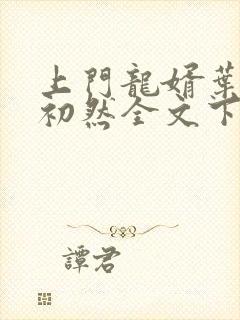 上門龍婿葉
初然全文下
譚君